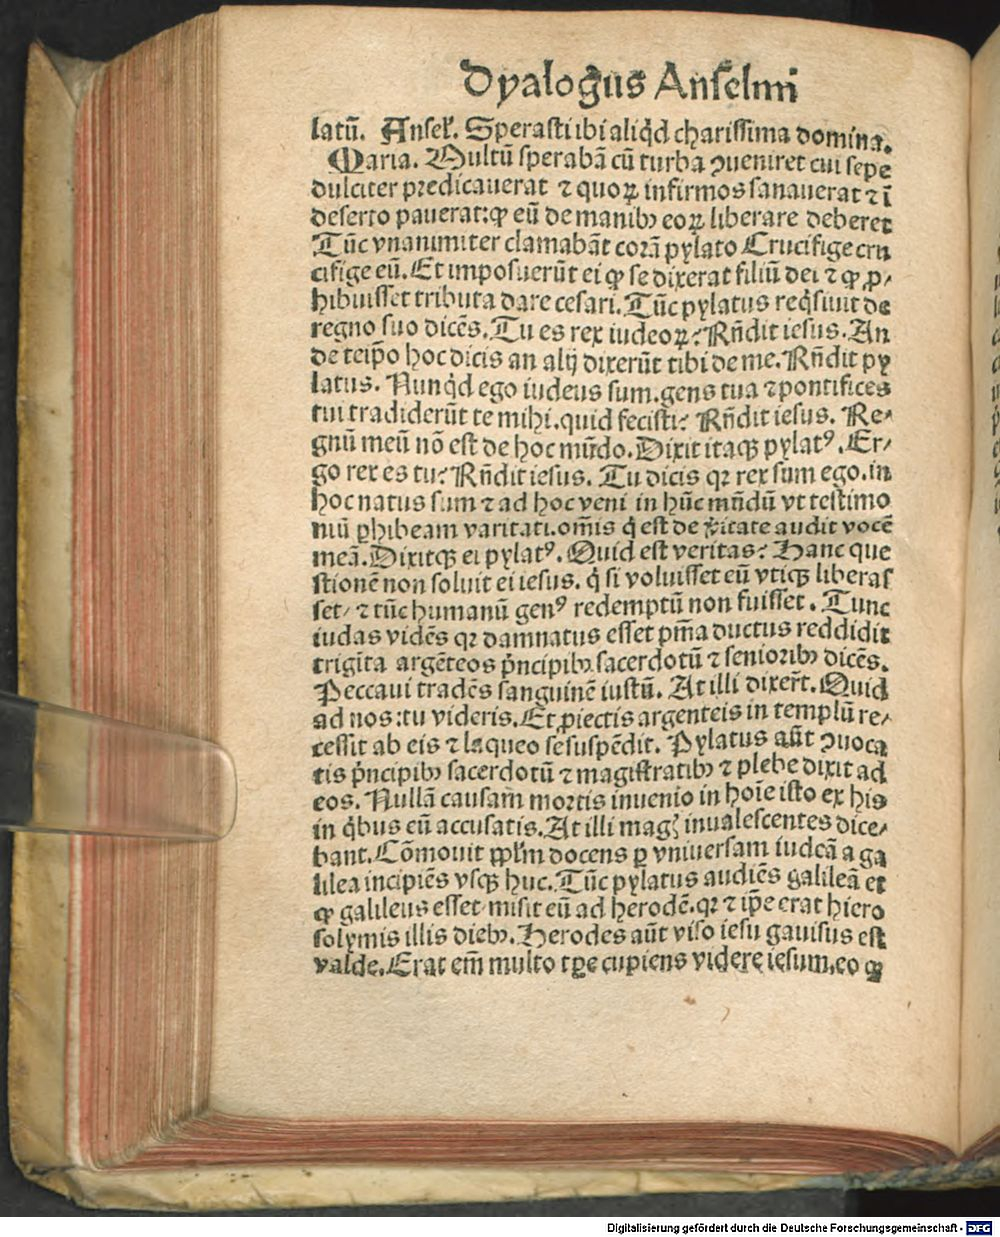 Dyalogus Anselmi
latū. Anseł. Sperasti ibi aliq̇d charissima domina.
Maria. Multū sperabā cū turba ꝯueniret cui sepe
dulciter predicauerat ⁊ quoꝝ infirmos sanauerat ⁊ ī
deserto pauerat: ꝙ eū de manibꝰ eoꝝ liberare deberet
Tūc vnanimiter clamabāt corā pylato Crucifige cru
cifige eū. Et imposuerūt ei ꝙ se dixerat filiū dei ⁊ ꝙ ꝓ⸗
hibuisset tributa dare cesari. Tūc pylatus req̇siuit de
regno suo dicēs. Tu es rex iudeoꝝ? Rn̄dit iesus. An
de teip̄o hoc dicis an alij dixerūt tibi de me. Rn̄dit py
latus. Nunq̇d ego iudeus sum. gens tua ⁊ pontifices
tui tradiderūt te mihi. quid fecisti? Rn̄dit iesus. Re⸗
gnū meū nō est de hoc mūdo. Dixit itaqꝫ pylatꝰ. Er⸗
go rex es tu? Rn̄dit iesus. Tu dicis qꝛ rex sum ego. in
hoc natus sum ⁊ ad hoc veni in hūc mūdū vt testimo
niū ꝑhibeam varitati. om̄is q̇ est de v̇itate audit vocē
meā. Dixitqꝫ ei pylatꝰ. Quid est veritas? Hanc que
stionē non soluit ei iesus. q̇ si voluisset eū vtiqꝫ liberas
set/ ⁊ tūc humanū genꝰ redemptū non fuisset. Tunc
iudas vidēs qꝛ damnatus esset pm̄a ductus reddidit
triginta argēteos p̄ncipibꝰ sacerdotū ⁊ senioribꝰ dicēs.
Peccaui tradēs sanguinē iustū. At illi dixer̄t. Quid
ad nos: tu videris. Et ꝓiectis argenteis in templū re⸗
cessit ab eis ⁊ laqueo se suspēdit. Pylatus aūt ꝯuoca
tis p̄ncipibꝰ sacerdotū ⁊ magistratibꝰ ⁊ plebe dixit ad
eos. Nullā causam̄ mortis inuenio in hoīe isto ex his
in q̇bus eū accusatis. At illi mag̉ inualescentes dice⸗
bant. Cōmouit pp̄lm docens ꝑ vniuersam iudeā a ga
lilea incipiēs vsqꝫ huc. Tūc pylatus audiēs galileā et
ꝙ galileus esset misit eū ad herodē. qꝛ ⁊ ip̄e erat hiero
solymis illis diebꝰ. Herodes aūt viso iesu gauisus est
valde. Erat em̄ multo tꝑe cupiens videre iesum. eo ꝙ
Digitalisierung gefördert durch die Deutsche Forschungsgemeinschaft - DFG